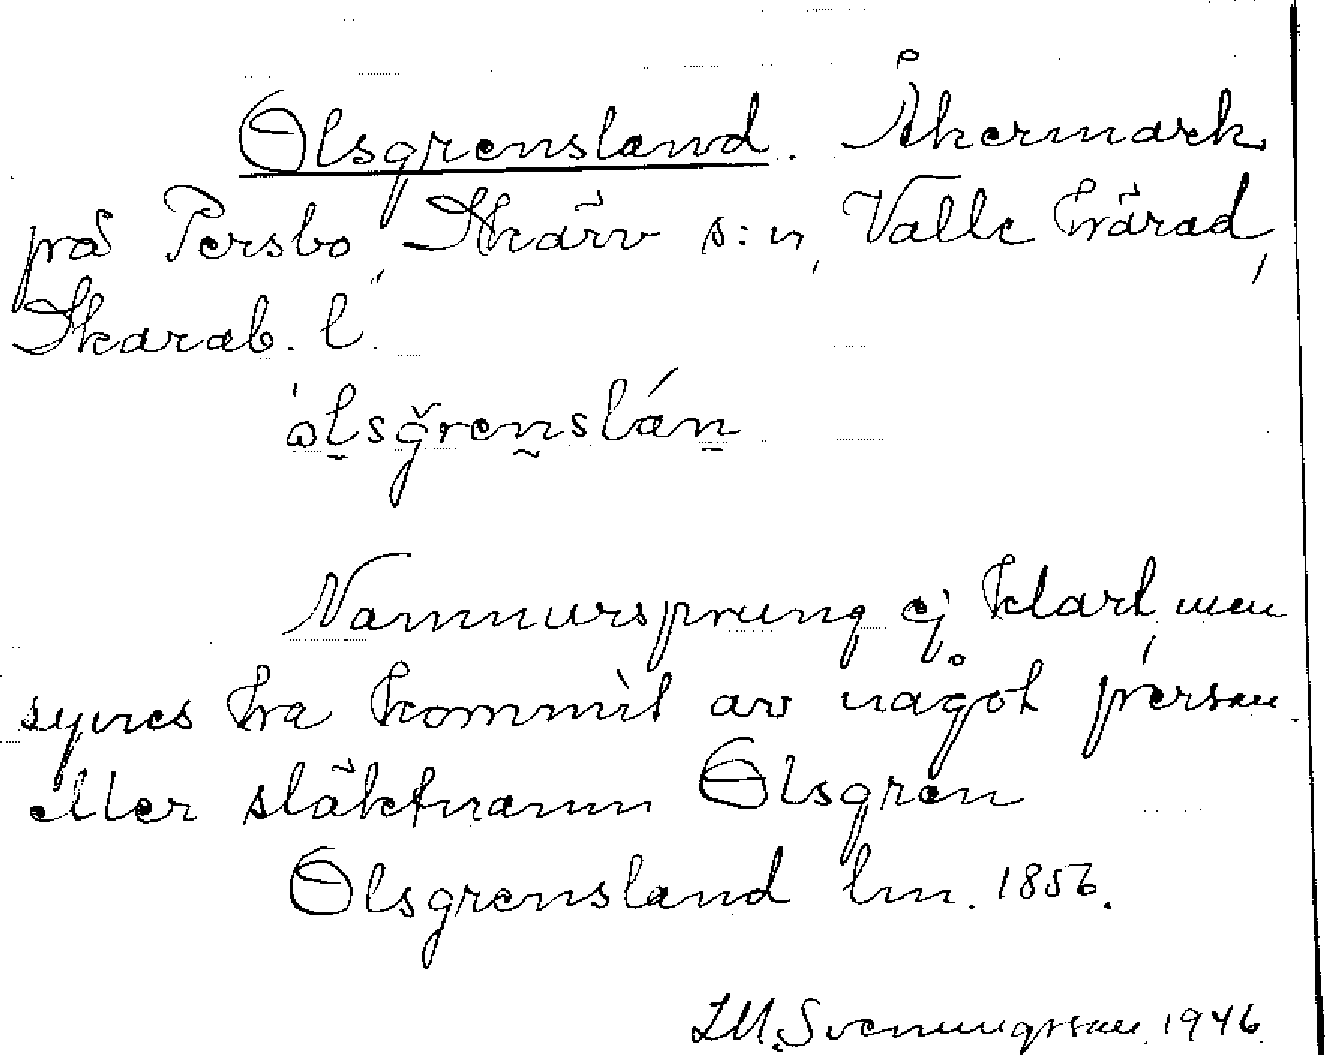 Olsgrensland. Åkermark
på Persbo, Skärv s:n, Valle härad,
Skarab. l.
Namnursprung ej klart, men
synes ha kommit av något person-
eller släktnamn Olsgren
Olsgrensland lm. 1856.
Svenungsson 1946.